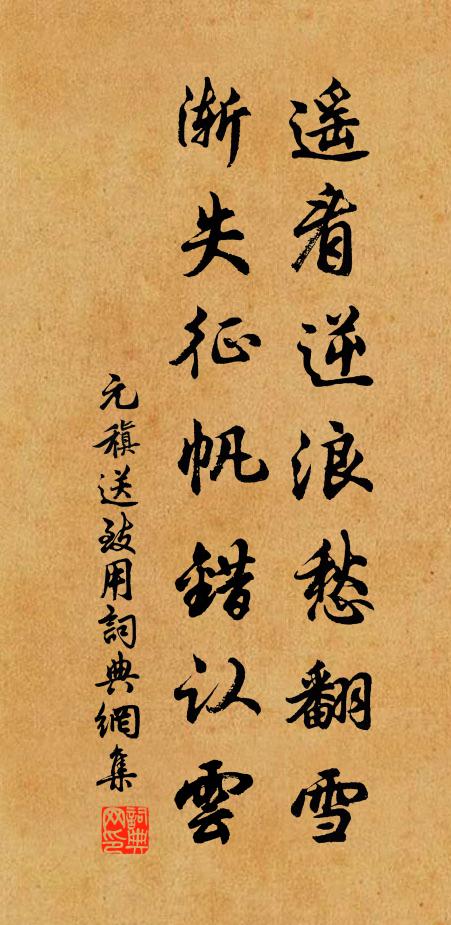 遥看逆浪愁翻雪
渐失征帆錯认雲
元稹送致用詞典網集
詞典网印